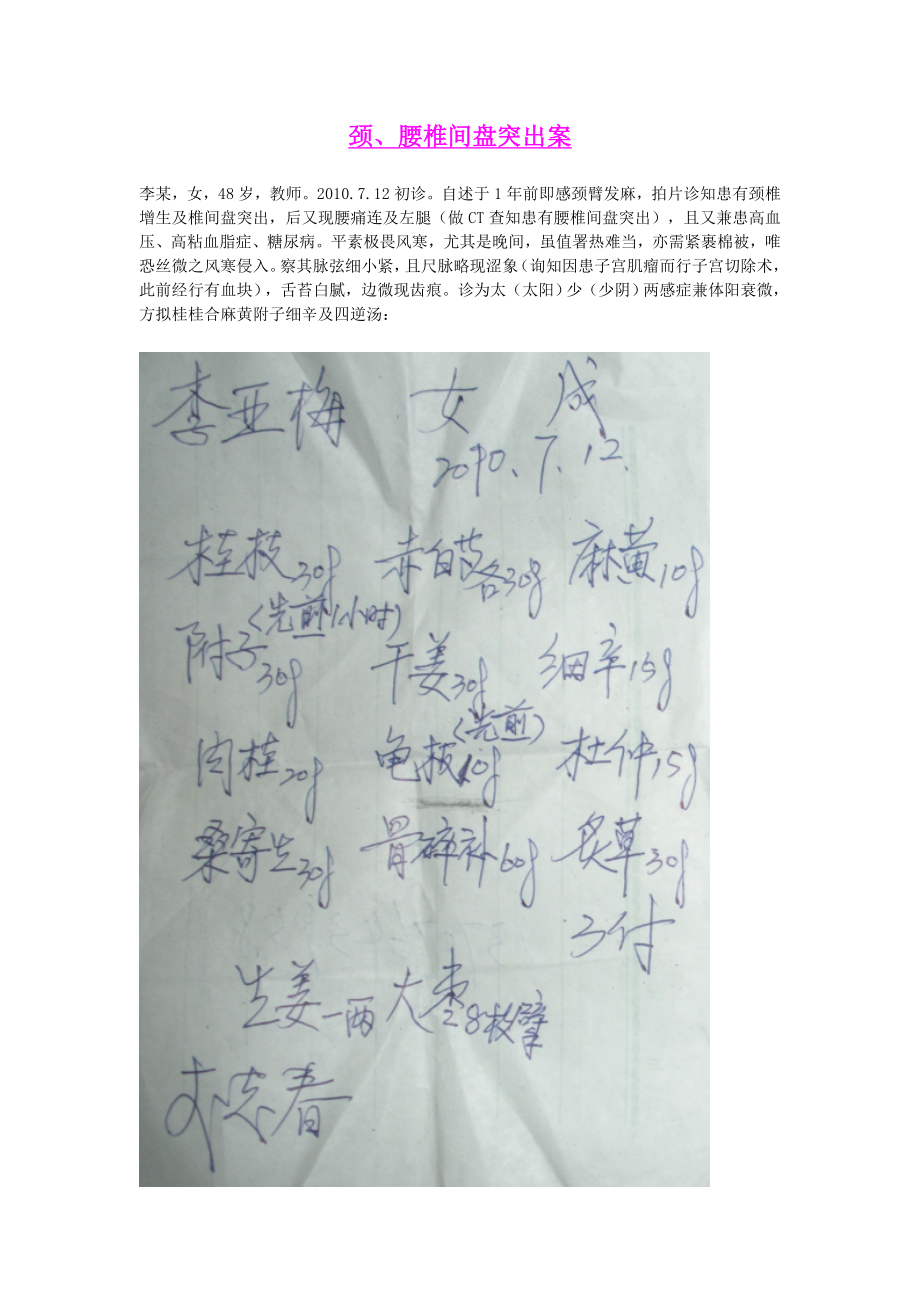 颈、腰椎间盘突出案
李某，女，48岁，教师。2010.7.12初诊。自述于1年前即感颈臂发麻，拍片诊知患有颈椎
增生及椎间盘突出，后又现腰痛连及左腿（做CT查知患有腰椎间盘突出），且又兼患高血
压、高粘血脂症、糖尿病。平素极畏风寒，尤其是晚间，虽值署热难当，亦需紧裹棉被，唯
恐丝微之风寒侵入。察其脉弦细小紧，且尺脉略现涩象（询知因患子宫肌瘤而行子宫切除术，
此前经行有血块），舌苔白腻，边微现齿痕。诊为太（太阳）少（少阴）两感症兼体阳衰微，
方拟桂桂合麻黄附子细辛及四逆汤：
李亚梅 女 成
2010.7.12.
桂枝30g 赤白芍各30g 麻黄10g
附子30g（先煎1小时） 干姜30g 细辛15g
肉桂20g 龟板10g（先煎） 杜仲15g
桑寄生30g 骨碎补60g 炙草30g
3付
生姜一两 大枣8枚擘
志春